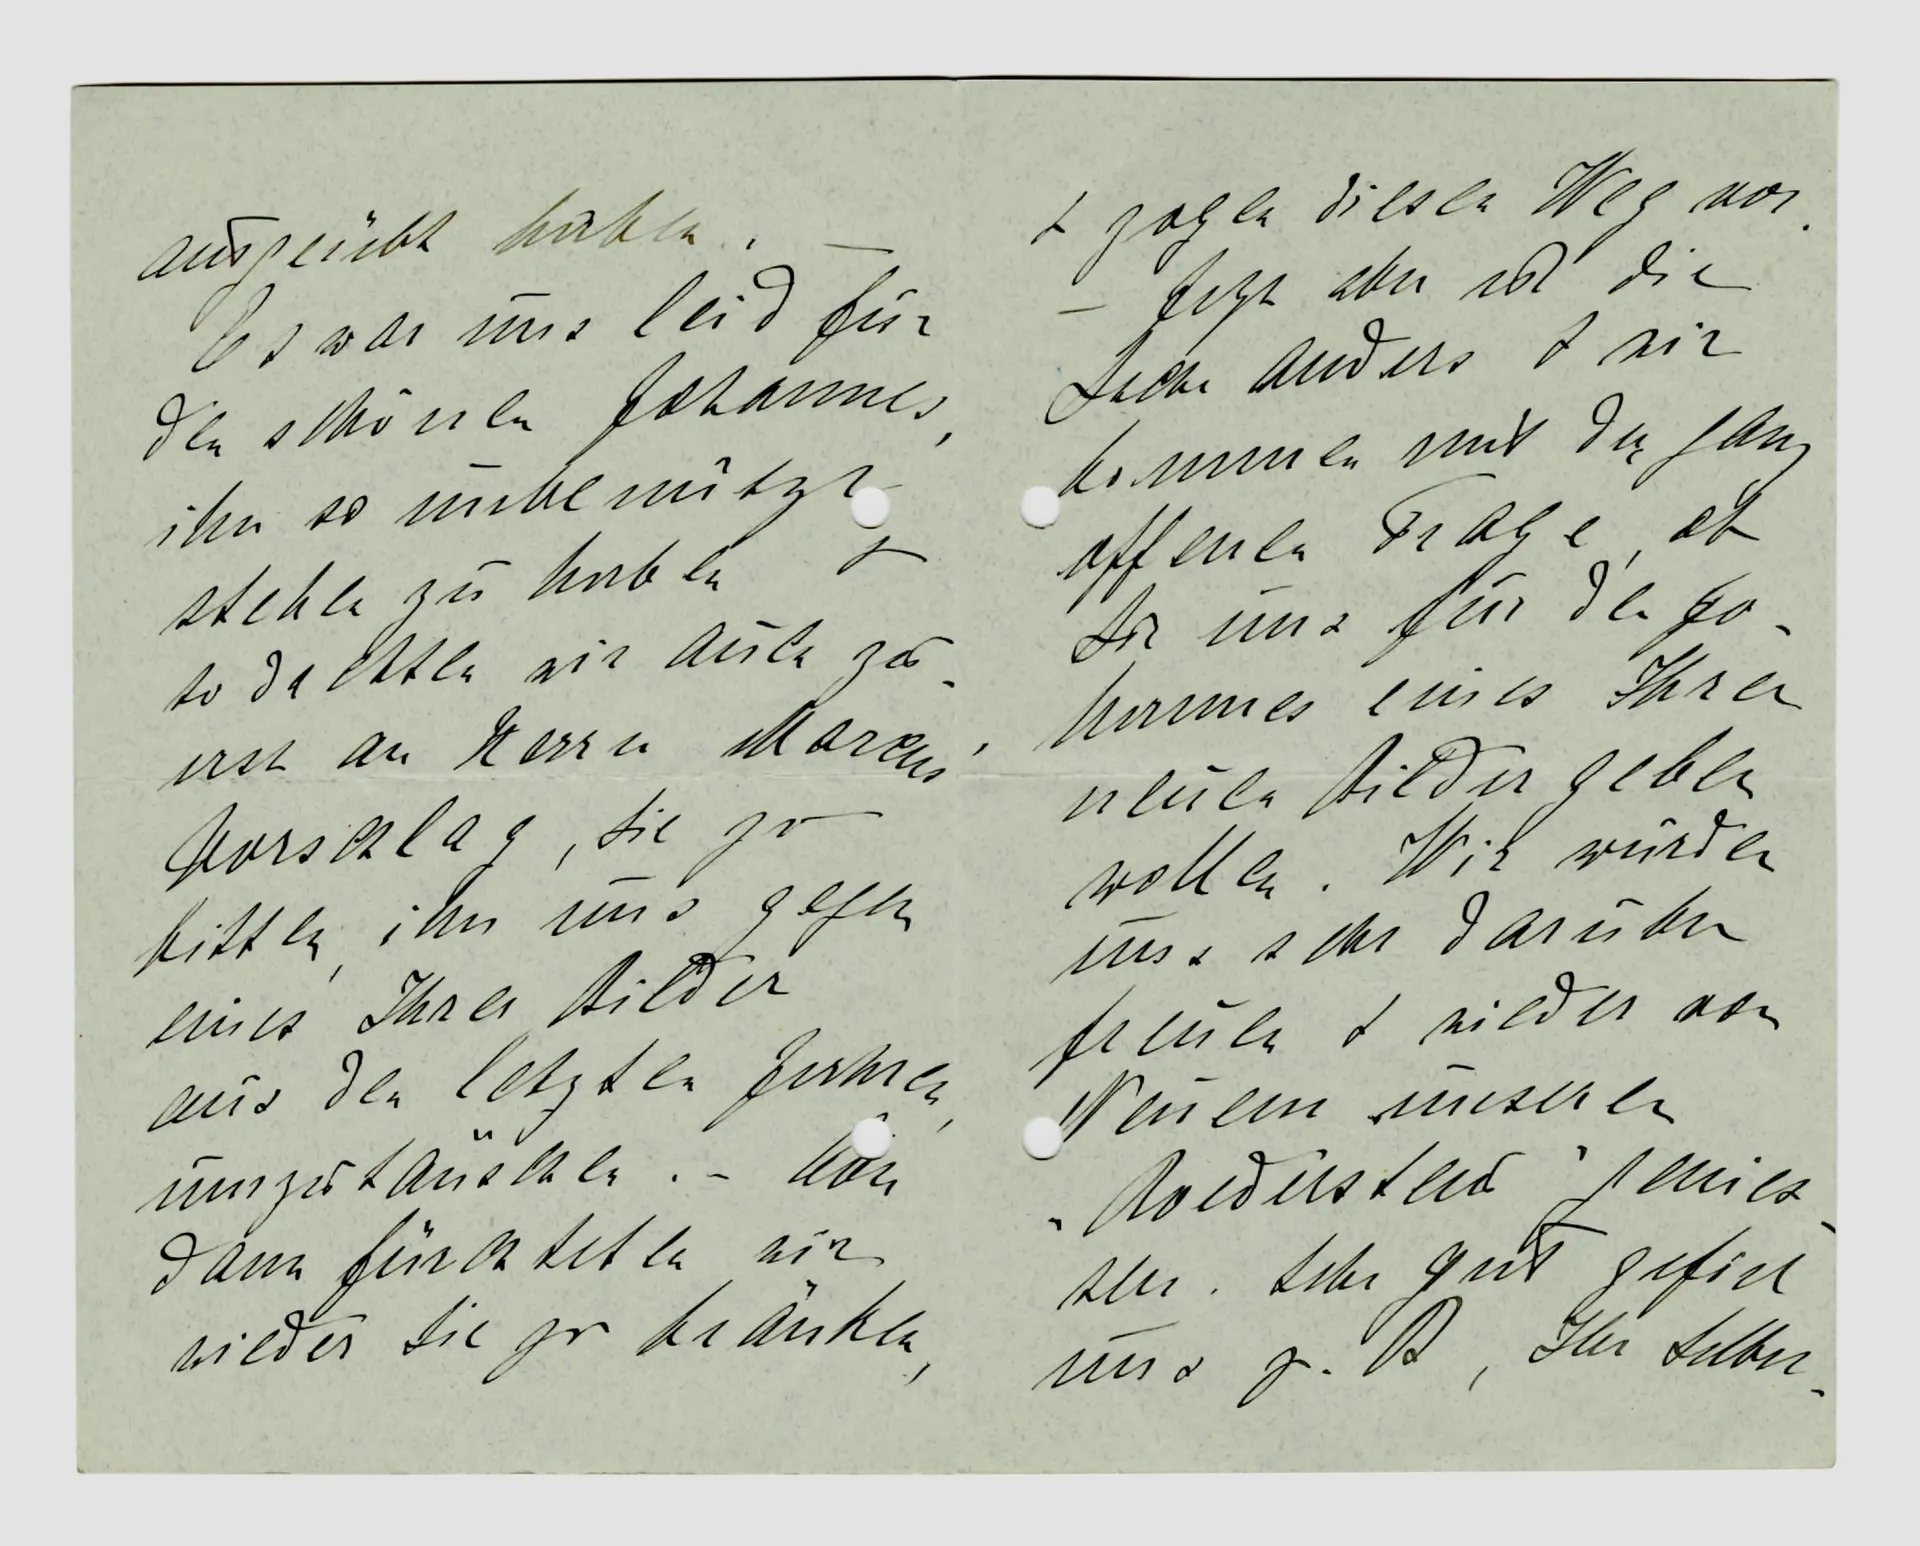 ausgeübt haben. —
Es war uns leid für
den schönen Johannes,
ihn so unbenützt
stehen zu haben &
so dachten wir auch zu-
erst an Herrn Marcus'
Vorschlag, Sie zu
bitten, ihn uns gegen
eines Ihrer Bilder
aus den letzten Jahren,
umzutäuschen. – Von
dann fürchteten wir
wieder Sie zu kränken,
& zogen diesen Weg vor.
— Jetzt aber ist die
Sache anders & wir
kommen mit der ganz
offenen Frage, ob
Sie uns für den Jo-
hannes eines Ihrer
neuen Bilder geben
wollen. Wir würden
uns sehr darüber
freuen & wieder von
Neuem unseren
"Roederstein" genies-
sen. Sehr gut gefiel
uns z. B, Ihr Selber-